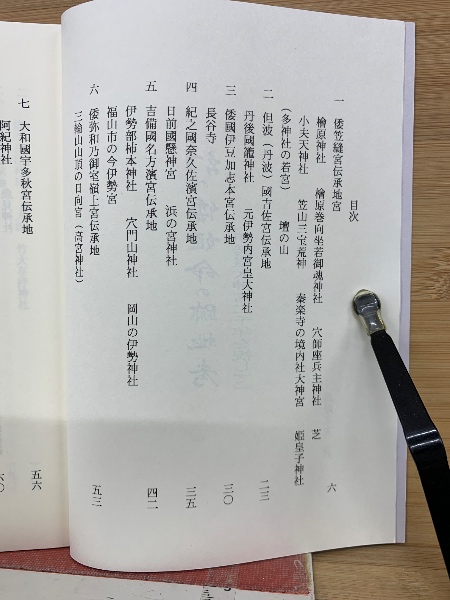 目次
一 倭笠縫宮伝承地宮 六
檜原神社 檜原巻向坐若御魂神社 穴師座兵主神社 芝
小夫天神社 笠山三宝荒神 秦楽寺の境内社大神宮 姫皇子神社
(多神社の若宮) 壇の山
二 但波(丹波)國吉佐宮伝承地 二三
丹後國籠神社 元伊勢内宮皇大神社
三 倭國伊豆加志本宮伝承地 三〇
長谷寺
四 紀之國奈久佐濱宮伝承地 三五
日前國懸神宮 浜の宮神社
五 吉備國名方濱宮伝承地 四二
伊勢部柿本神社 穴門山神社 岡山の伊勢神社
福山市の今伊勢宮
六 倭弥和乃御室嶺上宮伝承地 五三
三輪山山頂の日向宮(高宮神社)
七 大和國宇多秋宮伝承地 五六
阿紀神社 六〇